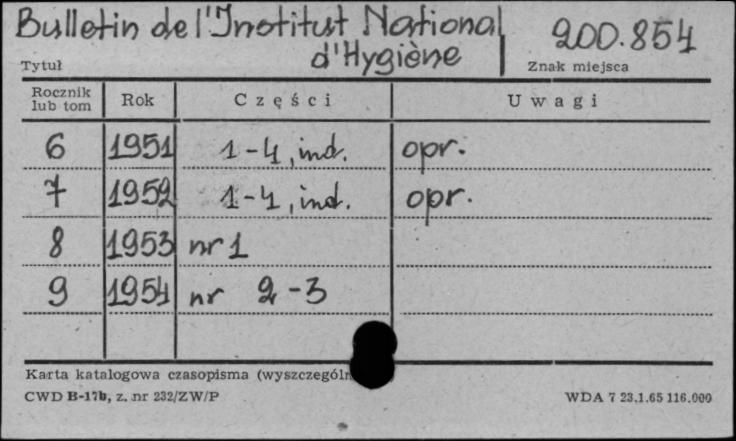 Bulletin de l'Institut National
d'Hygiène
200.854
Tytuł
Znak miejsca
Rocznik lub tom Rok Części Uwagi
6 1951 1-4, ind. opr.
7 1952 1-4, ind. opr.
8 1953 nr 1
9 1954 nr 2-3
Karta katalogowa czasopisma (wyszczególn
CWD B-17b, z. nr 232/ZW/P
WDA 7 23.1.65 116.000